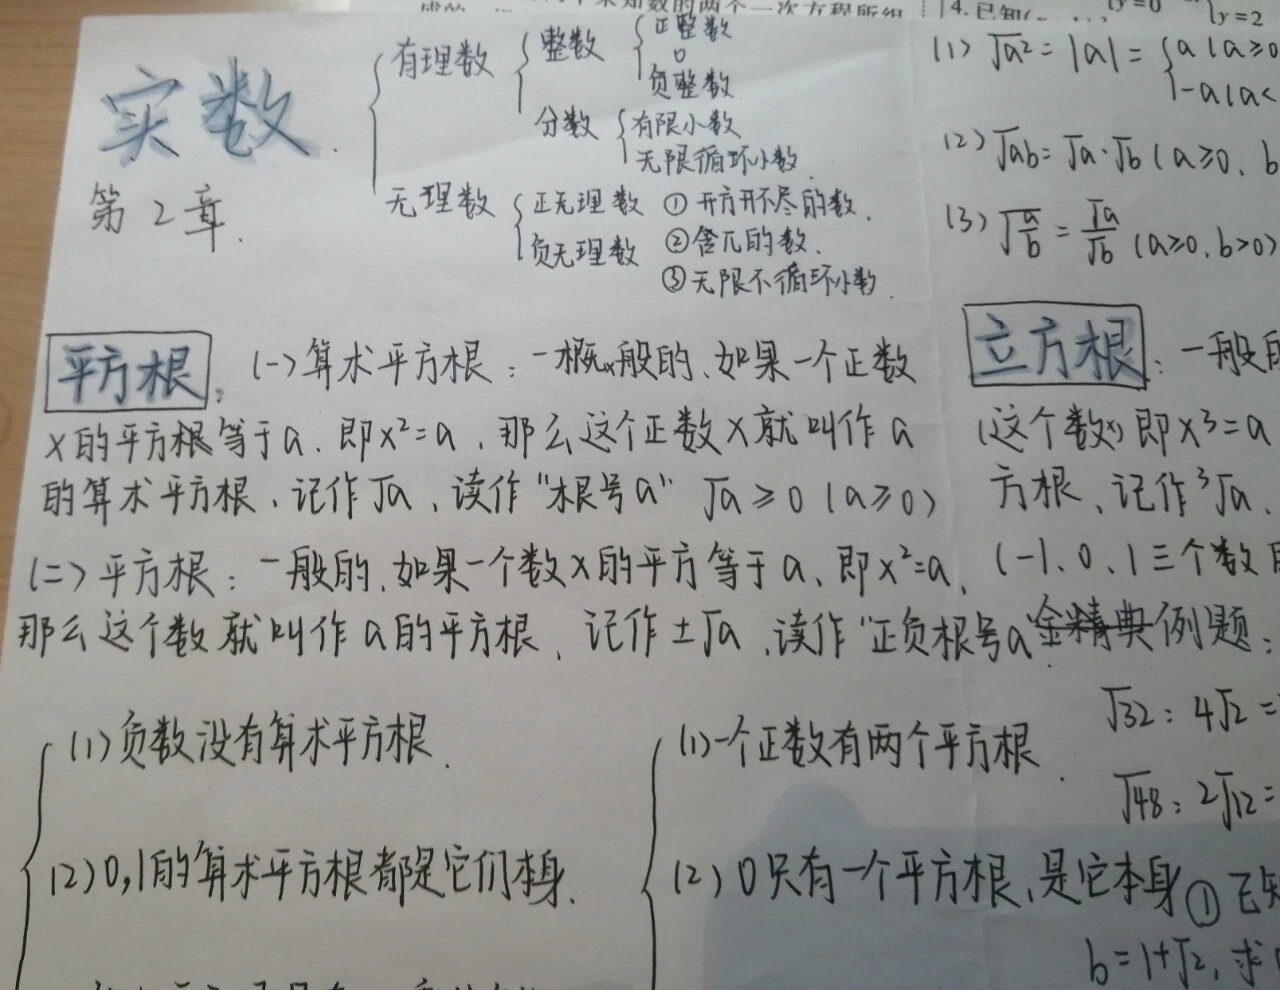 实数
第2章.
有理数
整数
正整数
0
负整数
分数
有限小数
无限循环小数
无理数
正无理数
负无理数
①开方开不尽的数.
②含π的数.
③无限不循环小数.
(1) √a² = |a| = { a (a≥0
-a (a<
(2) √ab = √a·√b (a≥0, b
(3) √a/b = √a/√b (a≥0, b>0)
平方根: (一)算术平方根: 一概般的、如果一个正数
x的平方根等于a、即x²=a、那么这个正数x就叫作a
的算术平方根、记作√a、读作"根号a" √a≥0 (a≥0)
(二)平方根: 一般的、如果一个数x的平方等于a、即x²=a、
那么这个数就叫作a的平方根、记作±√a、读作"正负根号a
(1)负数没有算术平方根.
(2)0,1的算术平方根都是它们本身.
(1)一个正数有两个平方根.
(2)0只有一个平方根、是它本身
立方根: 一般的
(这个数x)即x³=a
方根、记作³√a、
(-1、0、1三个数
典例题:
√32: 4√2=
√48: 2√12=
①已知
b=1+√2, 求